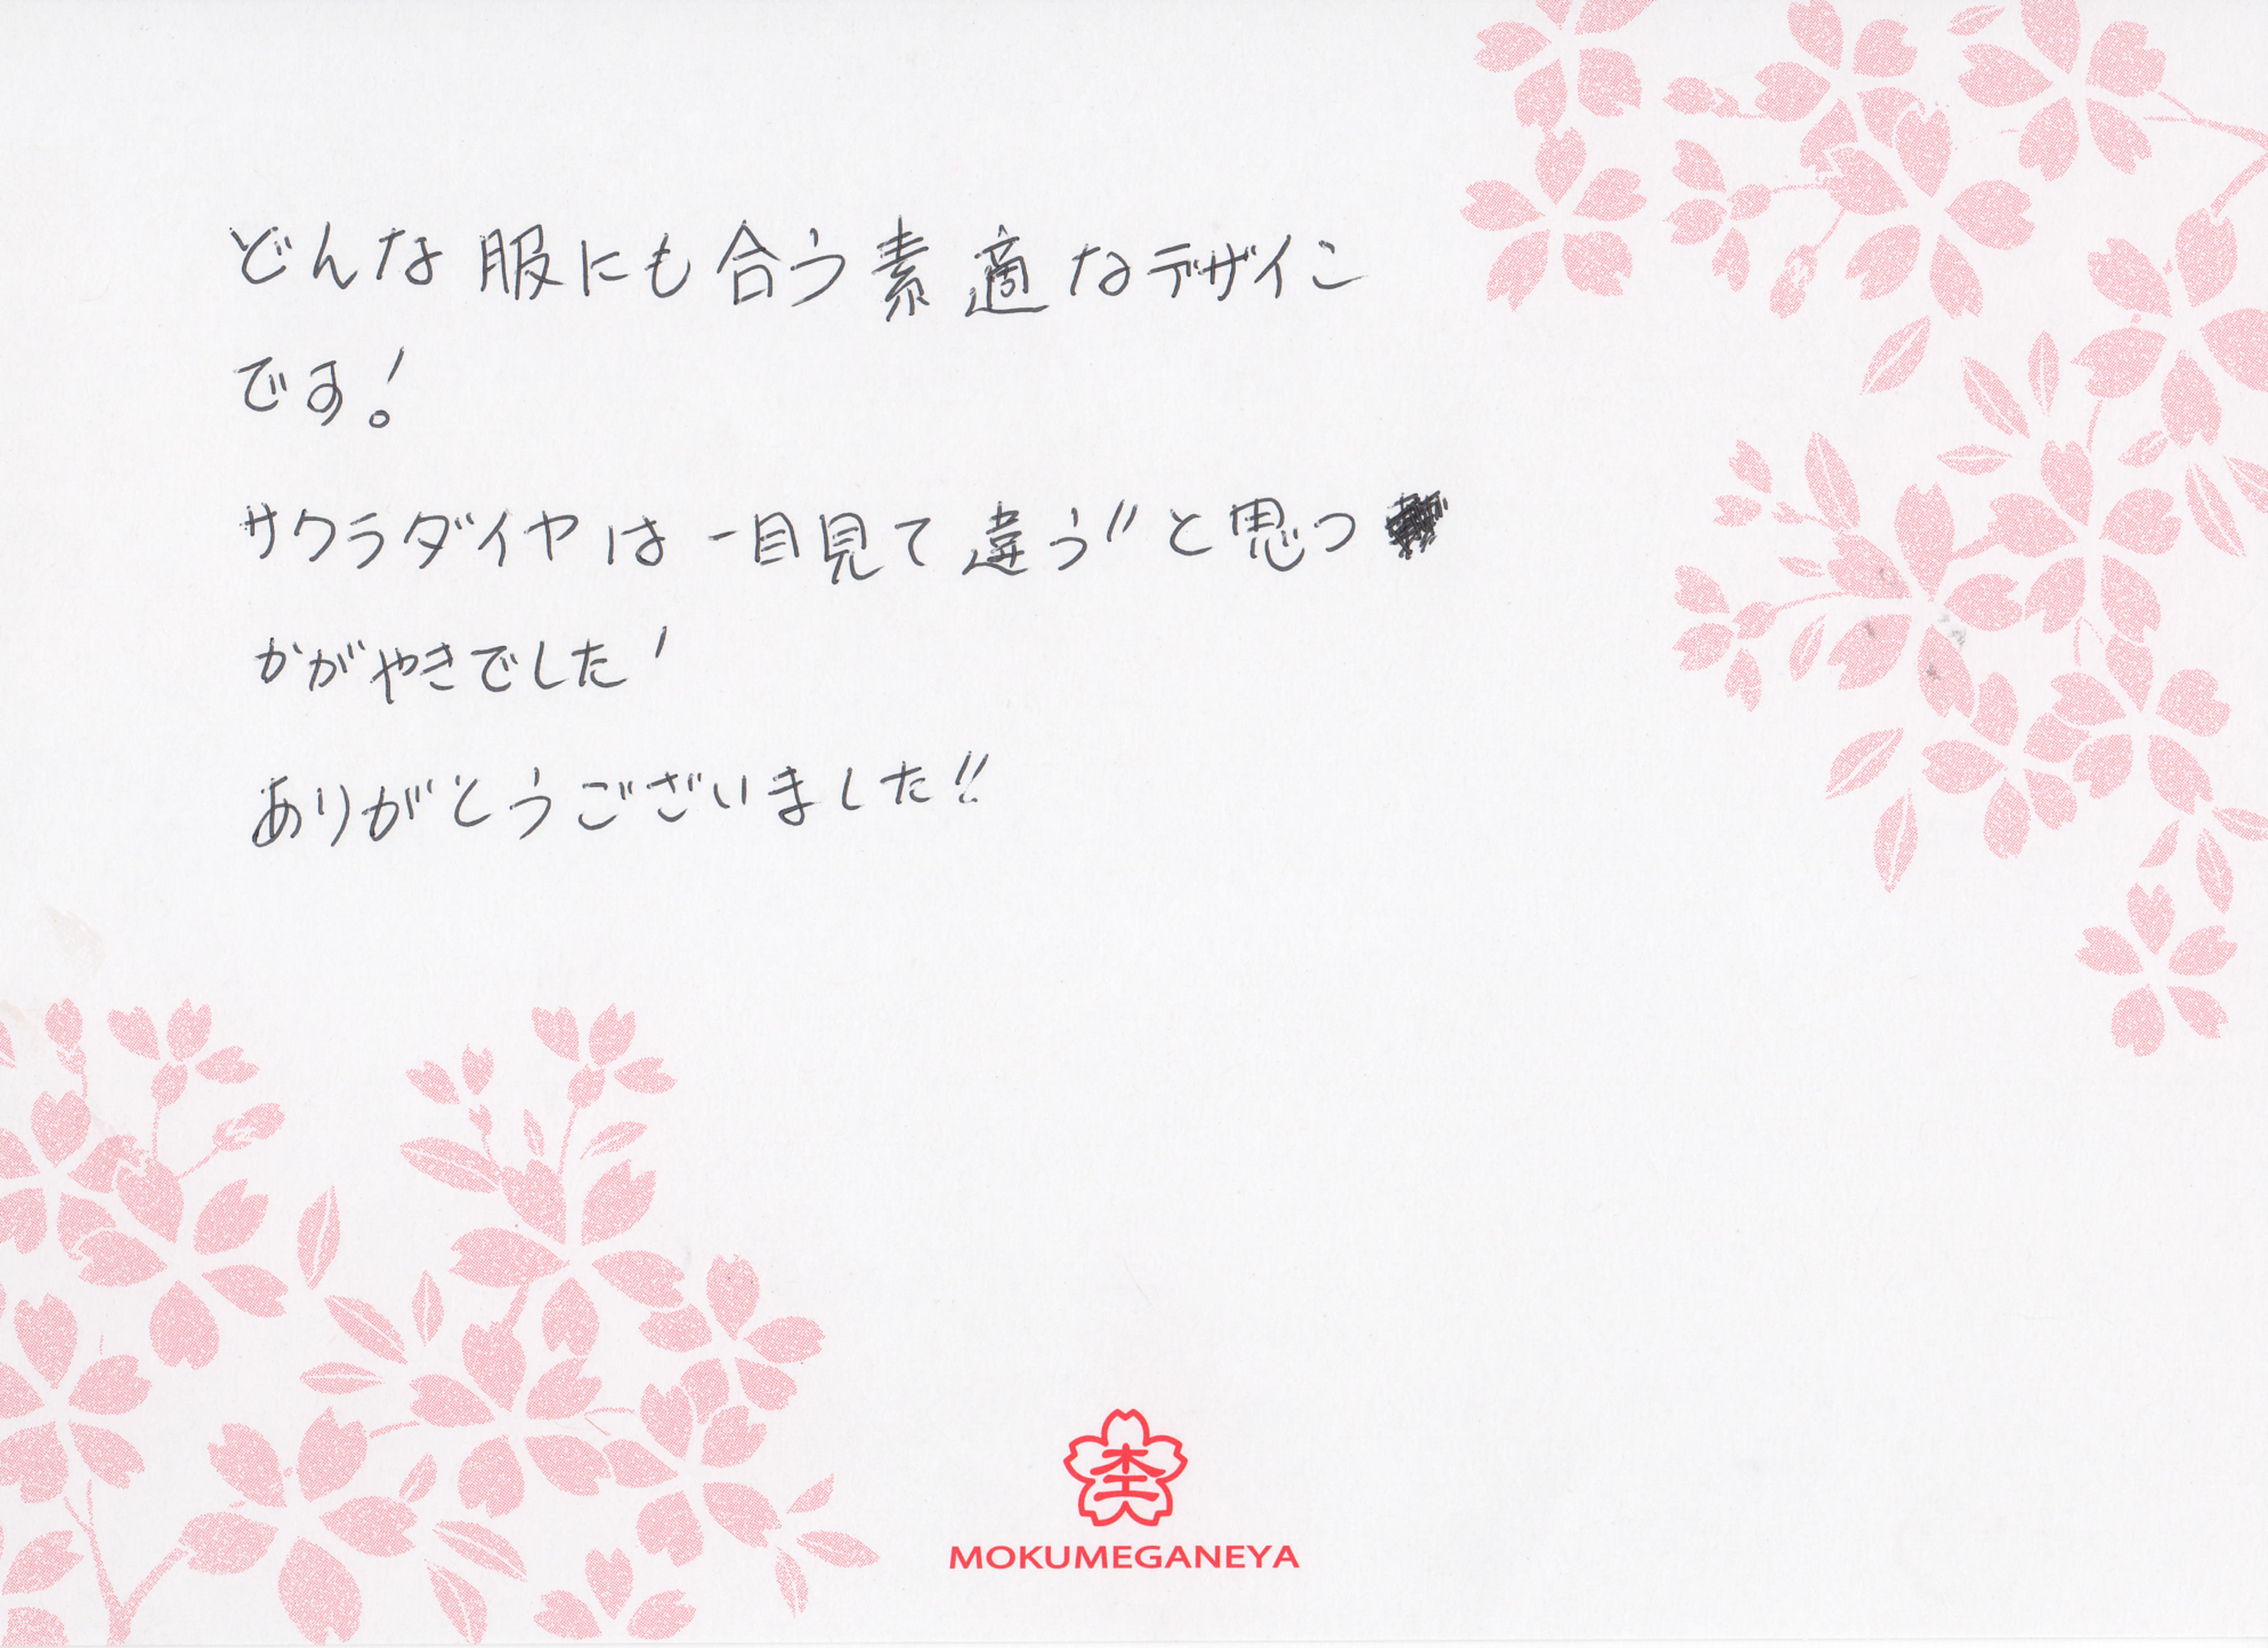 どんな服にも合う素適なデザイン
です!
サクラダイヤは一目見て違う!!と思う
かがやきでした!
ありがとうございました!!
杢
MOKUMEGANEYA